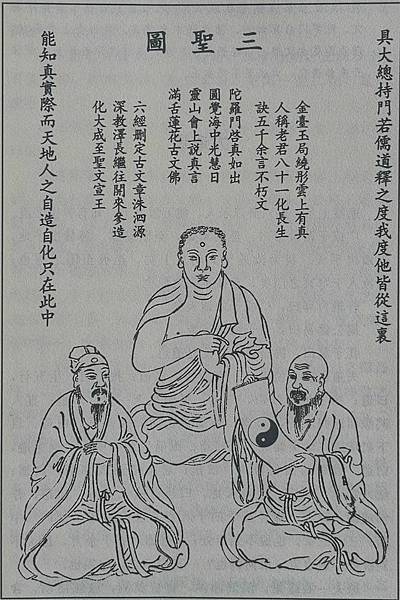 三聖圖
具大總持門若儒道釋之度我度他皆從這裏
金臺玉局繞彤雲上有真
人稱老君八十一化長生
訣五千餘言不朽文
陀羅門啓真如出
圓覺海中光慧日
靈山會上說真言
滿舌蓮花古文佛
六經刪定古文章洙泗源
深教澤長繼往開來參造
化大成至聖文宣王
能知真實際而天地人之自造自化只在此中